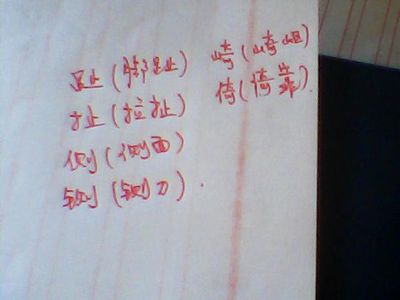 趾(脚趾) 崎(崎岖)
扯(拉扯) 倚(倚靠).
侧(侧面)
铡(铡刀).